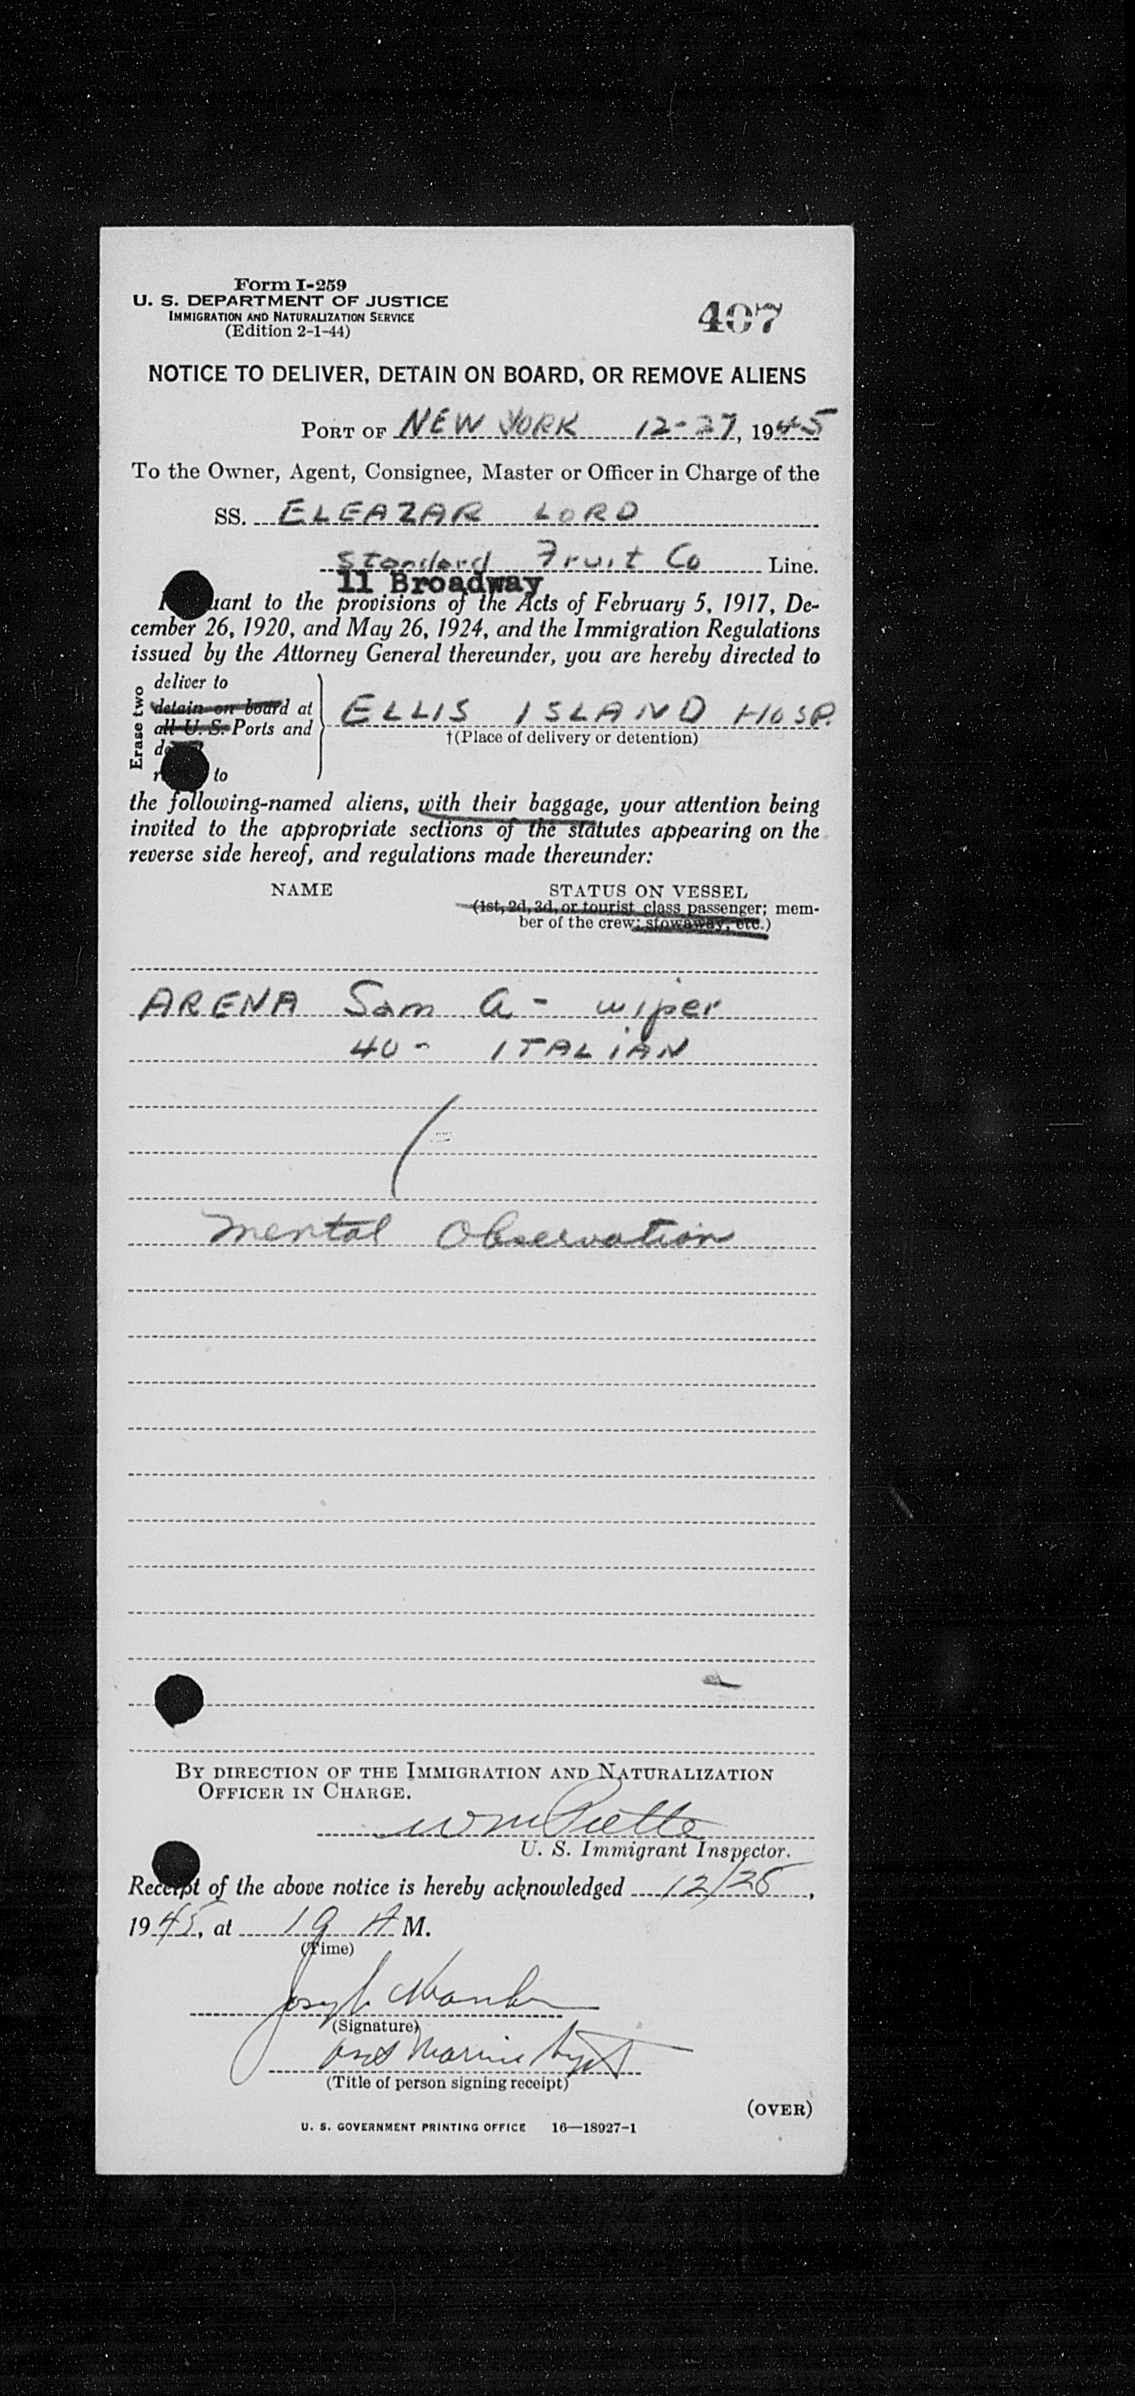 Form I-259
U. S. DEPARTMENT OF JUSTICE
IMMIGRATION AND NATURALIZATION SERVICE
(Edition 2-1-44)
407
NOTICE TO DELIVER, DETAIN ON BOARD, OR REMOVE ALIENS
PORT OF NEW YORK 12-27, 1945
To the Owner, Agent, Consignee, Master or Officer in Charge of the
SS. ELEAZAR LORD
Standard Fruit Co Line.
11 Broadway
uant to the provisions of the Acts of February 5, 1917, De-
cember 26, 1920, and May 26, 1924, and the Immigration Regulations
issued by the Attorney General thereunder, you are hereby directed to
Erase two
deliver to
detain on board at
all U. S. Ports and
to
ELLIS ISLAND HOSP.
†(Place of delivery or detention)
the following-named aliens, with their baggage, your attention being
invited to the appropriate sections of the statutes appearing on the
reverse side hereof, and regulations made thereunder:
NAME STATUS ON VESSEL
(1st, 2d, 3d, or tourist class passenger; mem-
ber of the crew; stowaway, etc.)
ARENA Sam A - wiper
40 - ITALIAN
Mental Observation
BY DIRECTION OF THE IMMIGRATION AND NATURALIZATION
OFFICER IN CHARGE.
Wm Piette
U. S. Immigrant Inspector.
Receipt of the above notice is hereby acknowledged 12/28,
1945, at A M.
(Time)
Joseph
(Signature)
Marine
(Title of person signing receipt)
(OVER)
U. S. GOVERNMENT PRINTING OFFICE 16—18927-1